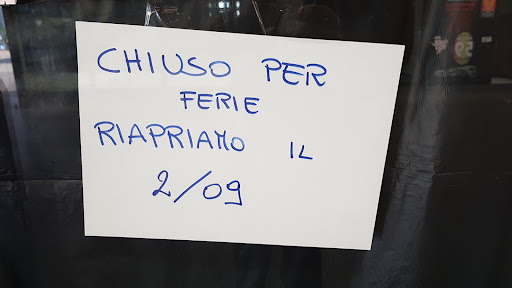 CHIUSO PER
FERIE
RIAPRIAMO IL
2/09